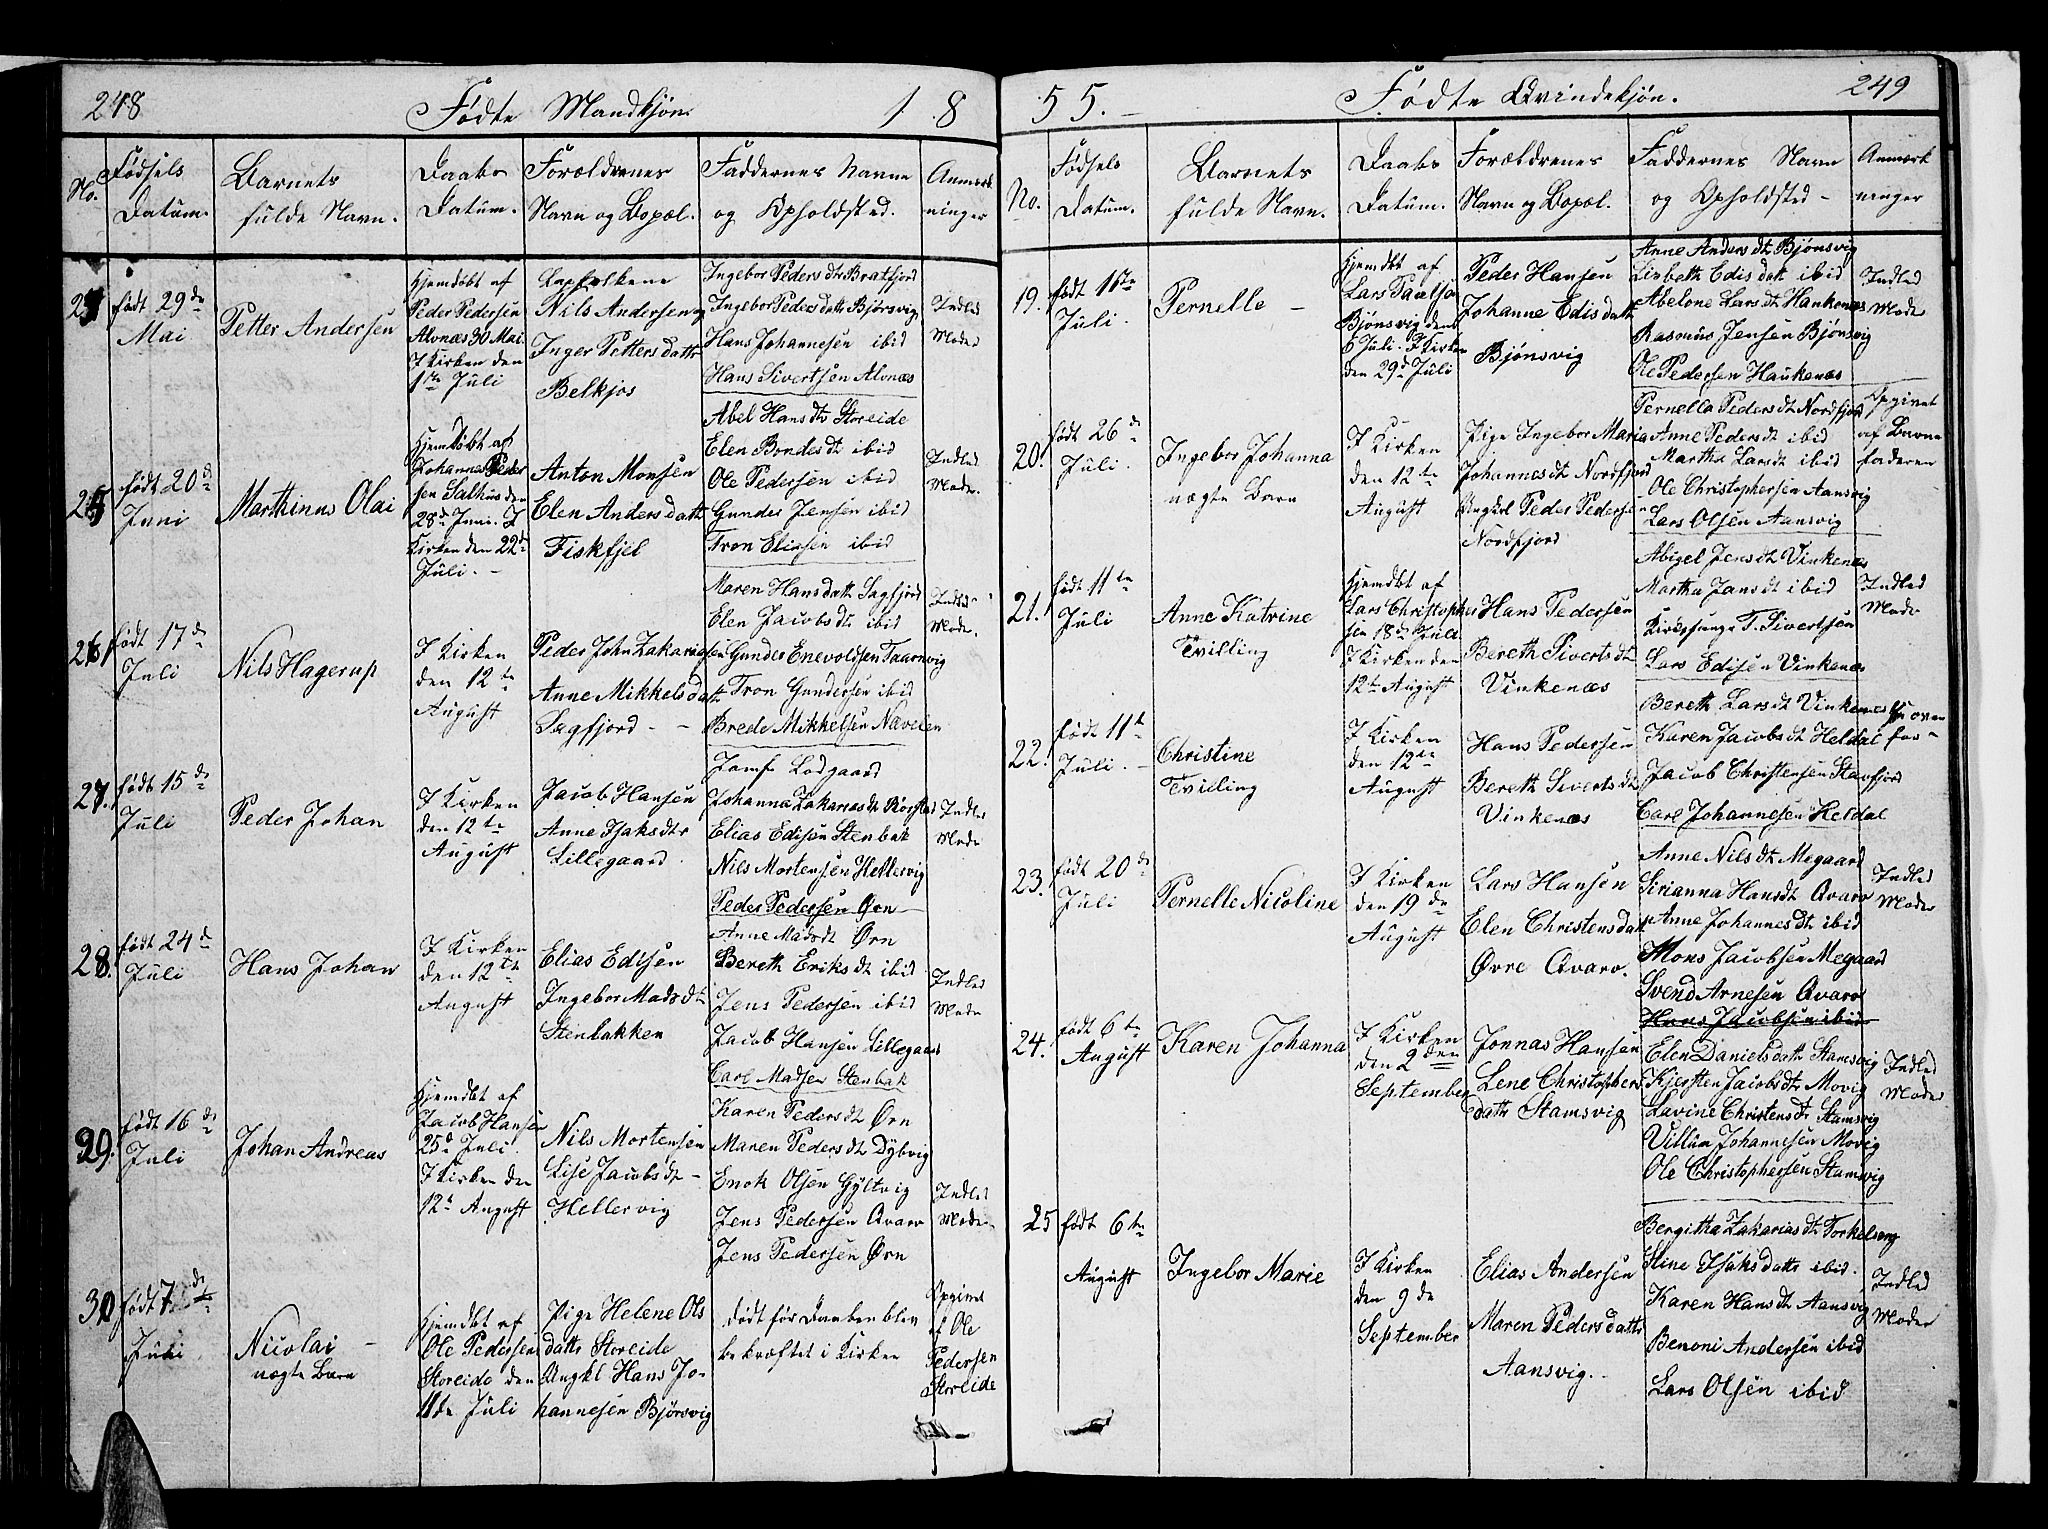 248 Fødte Mandkjøn. 1 8
No.
Fødsels
Datum.
Barnets
fulde Navn.
Daabs
Datum.
Forældrenes
Navn og Bopæl.
Faddernes Navne
og Opholdsted.
Anmærk
ninger
født 29de
Mai
Petter Andersen
Hjemdøbt af
Peder Pedersen
Alvnæs 30 Mai.
I Kirken den
1ste Juli
Lapfolkene
Nils Andersen og
Inger Petters datt
Belkjos
Ingebor Peders dtr Bratfjord
Ingebor Peders datt Bjørsvig
Hans Johannesen ibid
Hans Sivertsen Alvnæs
Indled
Moder
25
født 20de
Juni
Marthinus Olai
Hjemdøbt af
Johannes Peder
sen Salhus den
28de Juni. I
Kirken den 22de
Juli. -
Anton Monsen
Elen Anders datt
Fiskfjel
Abel Hans dtr Storeide
Elen Bondes dt ibid
Ole Pedersen ibid
Gunder Jensen ibid
Tron Eliasen ibid
Indled
Moder.
26
født 17de
Juli
Nils Hagerup
I Kirken
den 12te
August
Peder John Zakariasen
Anne Mikkels datt
Sagfjord - -
Maren Hans datt Sagfjord
Elen Jacobs dtr ibid
Gunder Enevoldsen Taarnvig
Tron Gundersen ibid
Brede Mikkelsen Nævelen
Indled
Mode.
27.
født 15de
Juli
Peder Johan
I Kirken
den 12te
August
Jacob Hansen
Anne Isaks dtr
Lillegaard
Jomf. Lodgaard
Johanna Zakarias dt
Elias Edisen Stenbak
Nils Mortensen Hellervig
Peder Pedersen Ørn
Indled
Mode
28.
født 24de
Juli
Hans Johan
I Kirken
den 12te
August
Elias Edisen
Ingebor Mads dt
Stenbakken
Anne Mads dt Ørn
Bereth Eriks dt ibid
Jens Pedersen ibid
Jacob Hansen Lillegaard
Carl Madsen Stenbak
Indled
Mode
29.
født 16de
Juli
Johan Andreas
Hjemdbt af
Jacob Hansen
25de Juli.
I Kirken den
12te August
Nils Mortensen
Lise Jacobs dt -
Hellervig
Karen Peders dt Ørn
Maren Peders dt Dybvig
Enok Olsen Gyltvig
Jens Pedersen Qvarv
Jens Pedersen Ørn
Indled
Moder
30
født 7de
Juli
Nicolai -
uægte Barn
Hjemdbt af
Ole Pedersen
Storeide den
11de Juli
Pige Helene Ols
datt Storeide
Ungkl Hans Jo-
hannesen Bjørsvig
Dødt før Daaben blev
bekræftet i Kirken
Opgivet
af Ole
Pedersen
Storeide
5 5. - Fødte Qvindekjøn. 249
No.
Fødsels
Datum.
Barnets
fulde Navn.
Daabs
Datum.
Forældrenes
Navn og Bopæl.
Faddernes Navn
og Opholdsted -
Anmærk
ninger
19.
født 1ste
Juli.
Pernelle -
Hjemdbt af
Lars Paulsen
Bjønsvig den
6 Juli. I Kirken
den 29de Juli
Peder Hansen
Johanne Edis datt
Bjønsvig
Anne Anders dt Bjønsvig
Lisbeth Edis datt ibid
Abelone Lars dt Haukenæs
Rasmus Jensen Bjønsvig
Ole Pedersen Haukenæs
Indled
Mode
20.
født 26de
Juli.
Ingebor Johanna
uægte Barn
I Kirken
den 12te
August
Pige Ingebor Maria
Johannes dt Nordfjord
Ungkrl Peder Pedersen
Nordfjord
Pernella Peders dt Nordfjord
Anne Peders dt ibid
Martha Lars dt ibid
Ole Christophersen Aansvig
Lars Olsen Aansvig
Opgivet
af Barne
faderen
21.
født 11te
Juli
Anne Katrine
Tvilling
Hjemdbt af
Lars Christopher
sen 18de Juli
I Kirken den
12te August
Hans Pedersen
Bereth Siverts dt
Vinkenæs
Abigel Jens dt Vinkenæs
Martha Jans dt ibid
Kirkesanger T. Sivertsen
Lars Edisen Vinkenæs
Indled
Mode
22.
født 11te
Juli. -
Christine
Tvilling
I Kirken
den 12te
August
Hans Pedersen
Bereth Siverts dt
Vinkenæs
Bereth Lars dt Vinkenæs
Karen Jacobs dt Heldal
Jacob Christensen Stavfjord
Carl Johannesen Heldal
Se oven
for -
23.
født 20de
Juli
Pernelle Nicoline
I Kirken
den 19de
August
Lars Hansen
Elen Christens datt
Øvre Qvarv.
Anne Nils dt Megaard
Sirianna Hans dt Qvarv
Anne Johannes dt ibid
Mons Jacobsen Megaard
Svend Arnesen Qvarv
Hans Jacobsen ibid
Indled
Moder
24.
født 6te
August
Karen Johanna
I Kirken
den 2den
September
Jonnas Hansen
Lene Christophers
datt Stamsvig
Elen Daniels datt Stamsvig
Kjersten Jacobs dt Movig
Lavine Christens dt Stamsvig
Villum Johannesen Movig
Ole Christophersen Stamsvig
Indled
Moder
25
født 6te
August
Ingebor Marie
I Kirken
den 9de
September
Elias Andersen
Maren Peders datt
Aansvig.
Bergitha Zakarias dt
Stine Isaks datt ibid.
Karen Hans dt Aansvig
Benoni Andersen ibid
Lars Olsen ibid
Indled
Moder